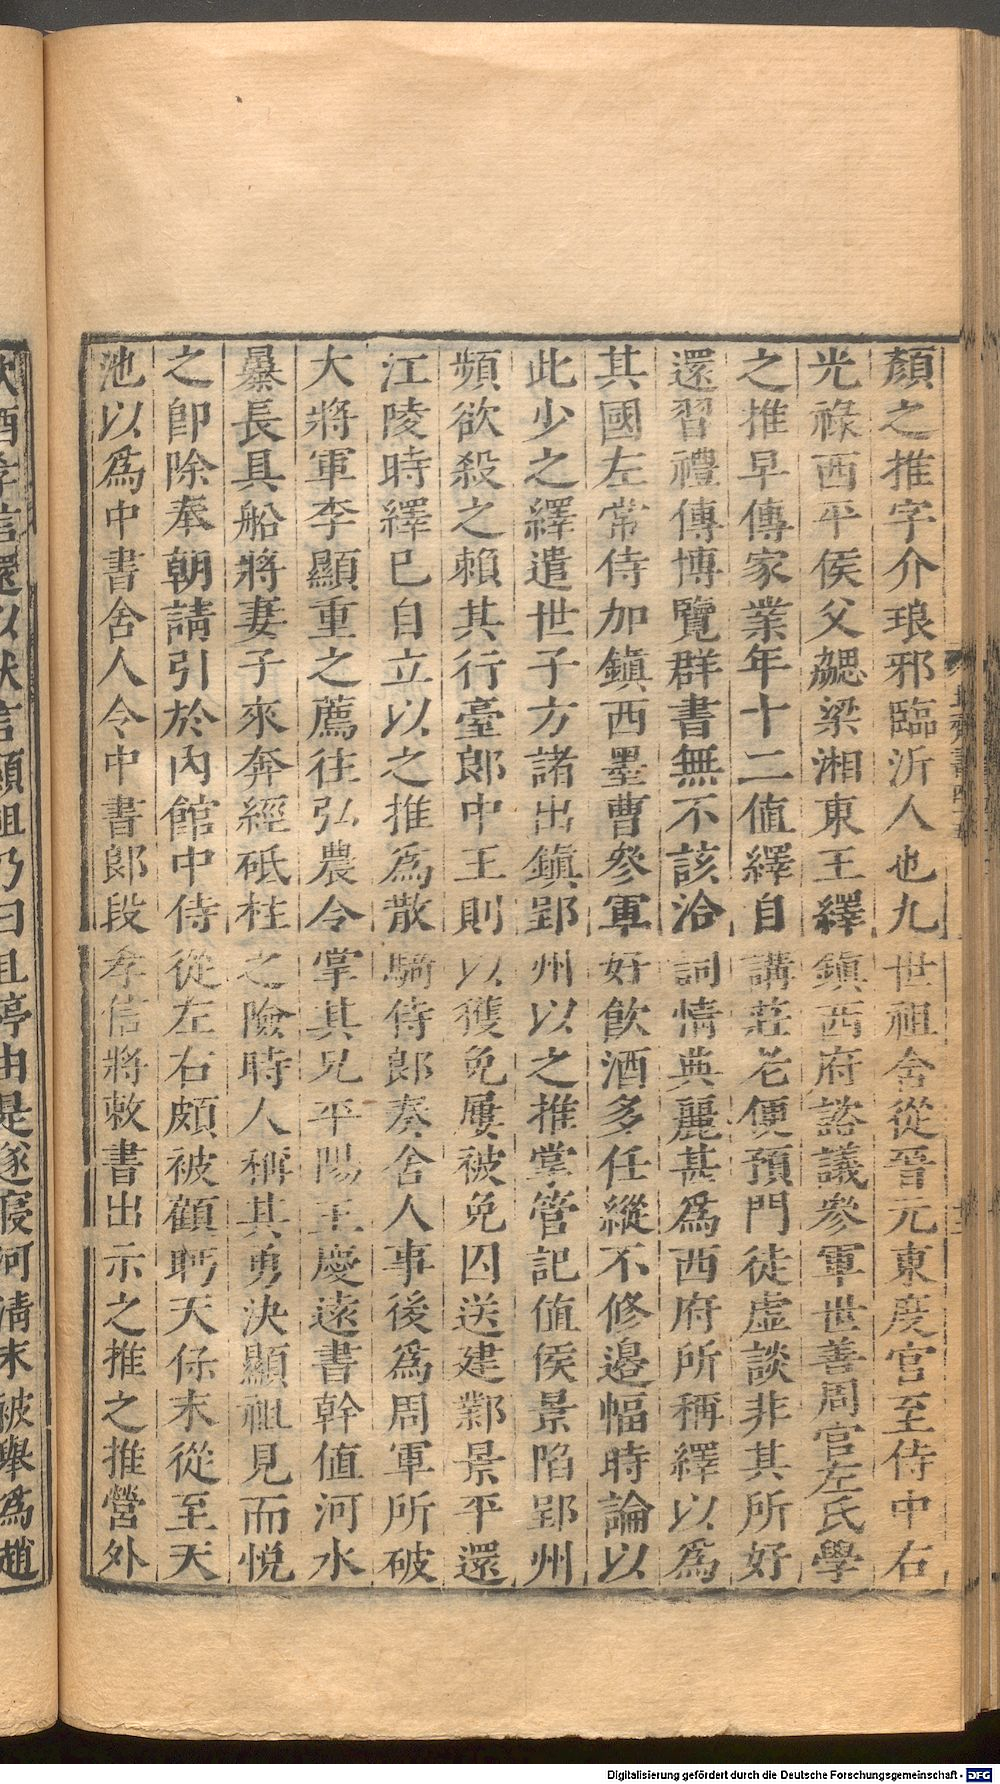 顏之推字介琅邪臨沂人也九世祖含從晉元東度官至侍中右
光祿西平侯父勰梁湘東王繹鎮西府諮議參軍世善周官左氏學
之推早傳家業年十二值繹自講莊老便預門徒虛談非其所好
還習禮傳博覽群書無不該洽詞情典麗甚為西府所稱繹以為
其國左常侍加鎮西墨曹參軍好飲酒多任縱不修邊幅時論以
此少之繹遣世子方諸出鎮郢州以之推掌管記值侯景陷郢州
頻欲殺之賴其行臺郎中王則以獲免屢被免囚送建鄴景平還
江陵時繹已自立以之推為散騎侍郎奏舍人事後為周軍所破
大將軍李顯重之薦往弘農令掌其兄平陽王慶遠書幹值河水
暴長具船將妻子來奔經砥柱之險時人稱其勇決顯祖見而悅
之即除奉朝請引於內館中侍從左右頗被顧眄天保末從至天
池以為中書舍人令中書郎段孝信將敕書出示之推之推營外
飲酒孝信還以狀言顯祖乃曰且停由是遂寢河清末被舉為趙
北齊書四十五
Digitalisierung gefördert durch die Deutsche Forschungsgemeinschaft - DFG